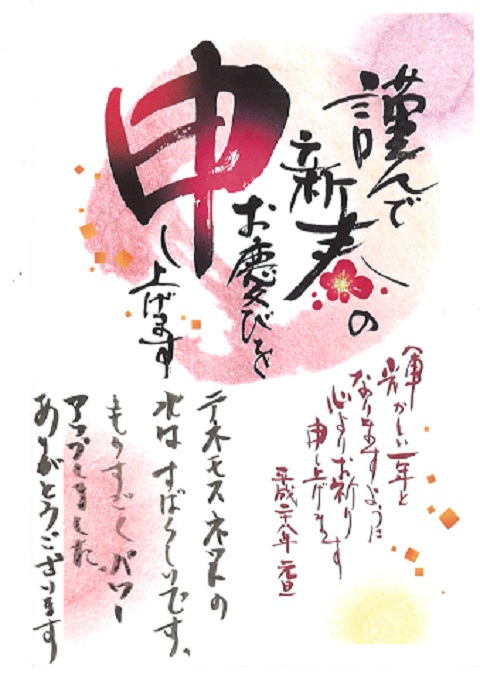 謹んで
新春の
お慶びを
申し上げます
輝かしい一年と
なりますように
心よりお祈り
申し上げます
平成二十八年 元旦
テネモスネットの
水は すばらしいです。
ものすごく パワー
アップしました。
ありがとうございます